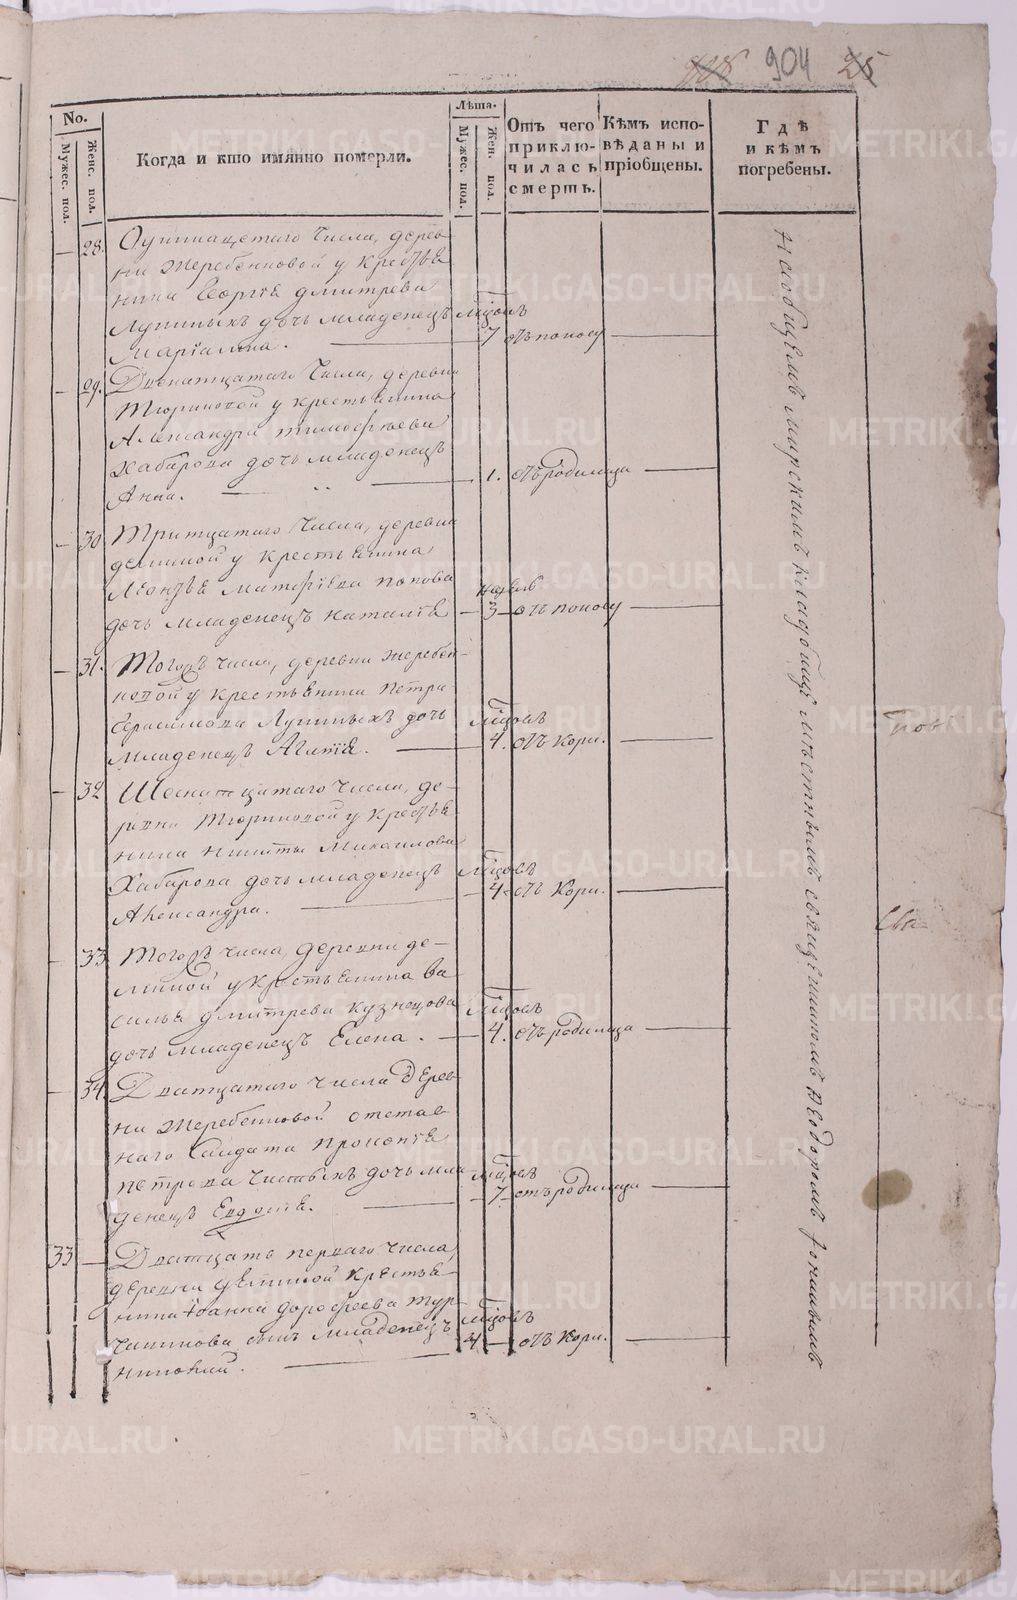 904 25
No.
Мужес. пол.
Женс. пол.
Когда и кто имянно померли.
Лѣта.
Мужес. пол.
Жен. пол.
Отъ чего приключилась смерть.
Кѣмъ исповѣданы и пріобщены.
Гдѣ и кѣмъ погребены.
28. числа, дерев-
ни Жеребенковой у крестья
нина Георгія Дмитрева
Лупиныхъ дочь младенецъ
Маріамна. 7 отъ поносу
29. числа, деревни
Тюриковой у крестьянина
Александра Тимофѣева
Хабарова дочь младенецъ
Анна. 1. отъ родимца
30 Тритцатаго числа, деревни
у крестьянина
попова
дочь младенецъ Наталія недѣль 3 отъ поносу
31. Тогожъ числа, деревни Жеребен-
ковой у крестьянина Петра
Герасимова Лупиныхъ дочь
младенецъ Агапія. 4. отъ кори.
32 числа, де-
ревни Тюриковой у крестья
нина Никиты Михайлова
Хабарова дочь младенецъ
Александра. 4 отъ кори.
33 Тогожъ числа, деревни де-
у крестьянина Ва
силья Дмитрева Кузнецова
дочь младенецъ Елена. 4. отъ родимца
34. Дватцатаго числа дерев-
ни Жеребенковой отстав-
наго солдата Прокопія
Петрова Чистыхъ дочь мла
денецъ Евдокія. 7 отъ родимца
33 Дватцать перваго числа
деревни крестья-
нина Іоанна Дорофеева Тур-
чанинова сынъ младенецъ
Николай. 4 отъ кори.
На общемъ мирскомъ кладбищѣ мѣстнымъ священникомъ Ѳеодоромъ